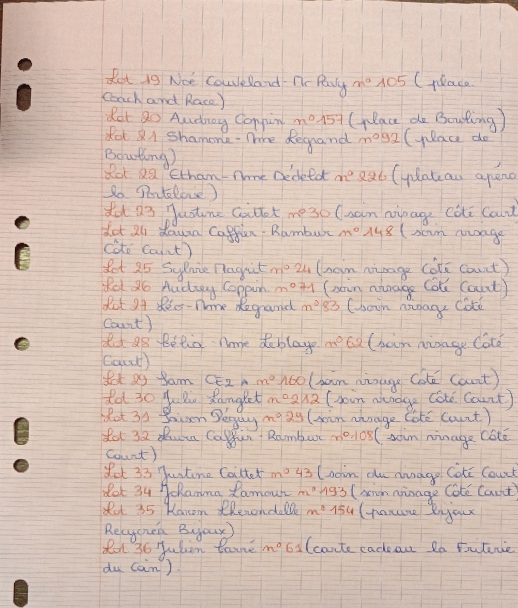 Lot 19 Noé Couveland - Mr Puly n°105 ( place
Coach and Race)
Lot 20 Audrey Coppin n°157 (place de Bowling)
Lot 21 Shanone - Mme Legrand n°92 ( place de
Bowling)
Lot 22 Ethan - Mme Dédelot n°226 (plateau apéro
la Porteloise)
Lot 23 Justine Caittet n°30 (soin visage Côté Court
Lot 24 Laura Caffier - Rambur n°148 ( soin visage
Côté Court)
Lot 25 Sylvie Magrit n°24 (soin visage Côté Court)
Lot 26 Audrey Coppin n°71 ( soin visage Côté Court)
Lot 27 Léo - Mme Legrand n°83 (soin visage Côté
Court)
Lot 28 Célia - Mme Leblaye n°62 (soin visage Côté
Court)
Lot 29 Sam CE2 A n°160 (soin visage Côté Court)
Lot 30 Julie Langlet n°212 (soin visage Côté Court)
Lot 31 Saison Péguy n°29 (soin visage Côté Court)
Lot 32 Laura Caffier - Rambur n°108( soin visage Côté
Court)
Lot 33 Justine Caittet n°43 (soin du visage Côté Court
Lot 34 Johanna Lamour n°193 (soin visage Côté Court)
Lot 35 Karen Lherondelle n°154 (parure bijoux
Recycréa Bijoux)
Lot 36 Julien Carré n°61 (carte cadeau la Fruterie
du Coin)